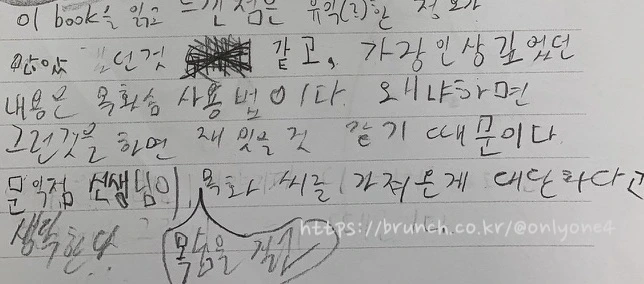 이 book을 읽고 느낀점은 유익(2)한 정보가
많았던것 같고, 가장 인상 깊었던
내용은 목화솜 사용법이다. 왜냐하면
그런것을 하면 재밌을것 같기 때문이다.
문익점 선생님이, 목화 씨를 가져온게 대단하다고
생각한다.
목숨을 걸고
https://brunch.co.kr/@onlyone4